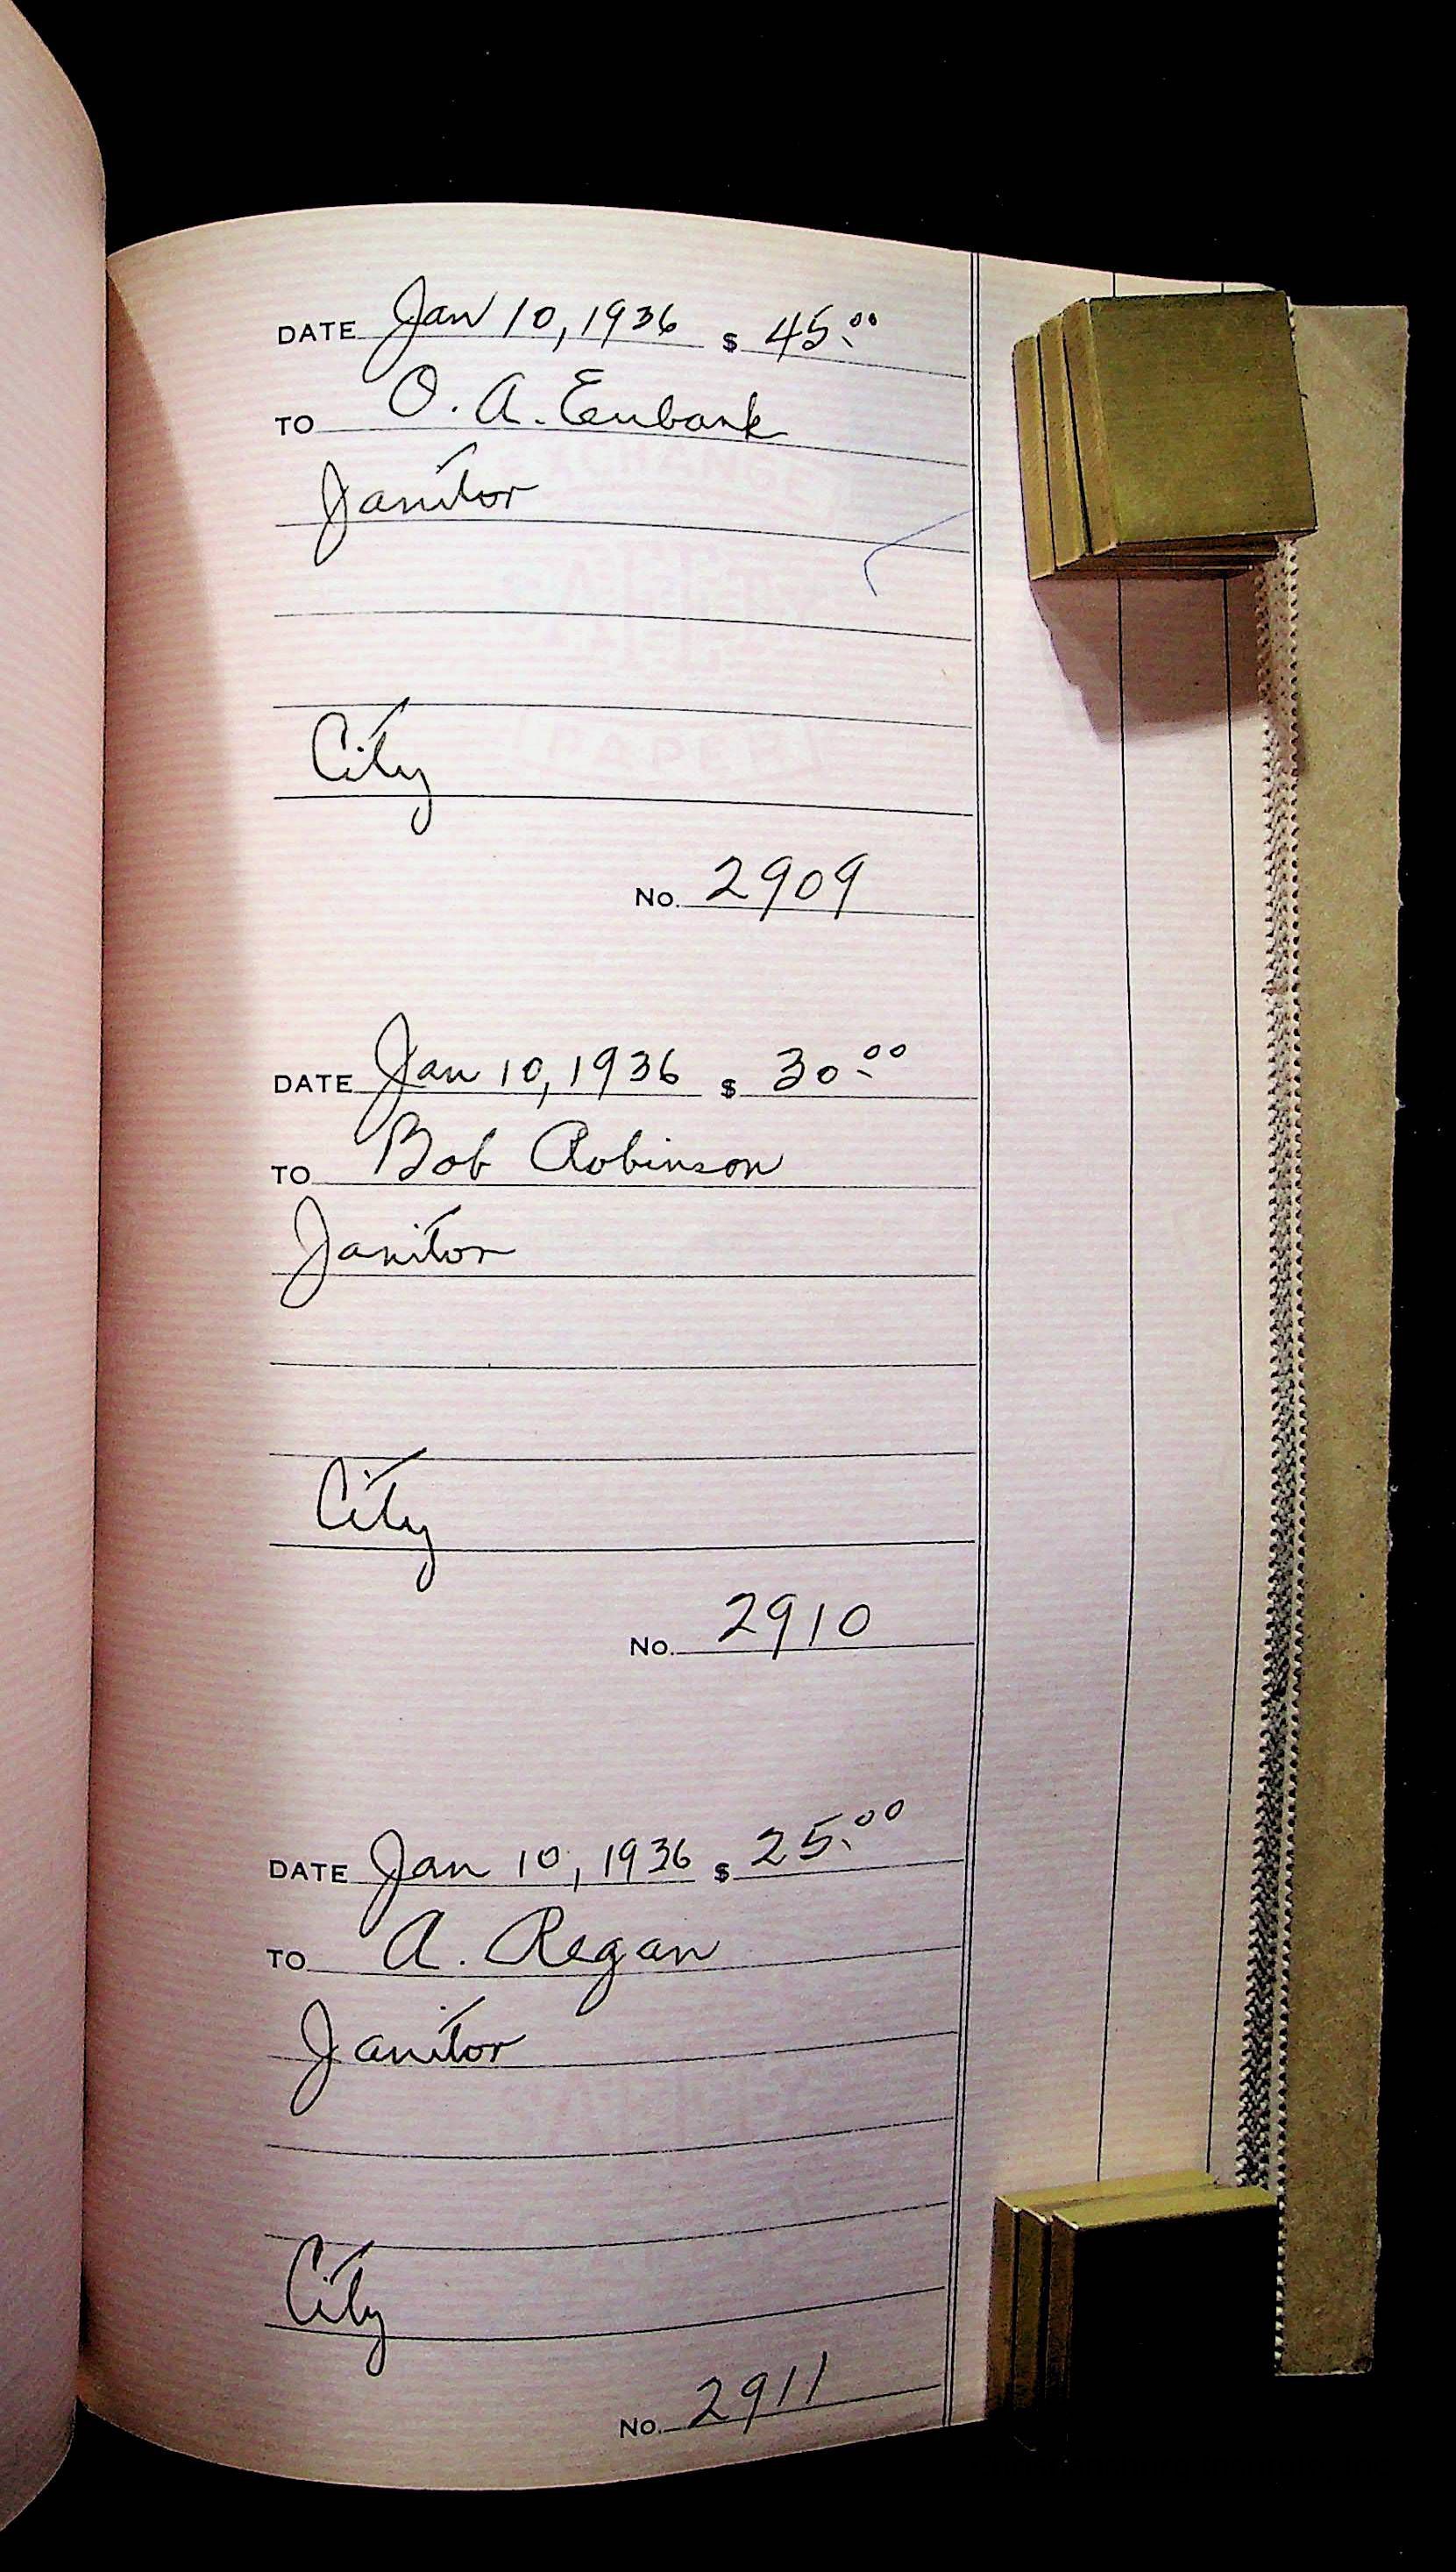 DATE Jan 10, 1936 $ 45.00
TO O. A. Eubank
Janitor
EXCHANGE
SAFETY
PAPER
City
No. 2909
DATE Jan 10, 1936 $ 30.00
TO Bob Robinson
Janitor
City
No. 2910
DATE Jan 10, 1936 $ 25.00
TO A. Regan
Janitor
City
No. 2911